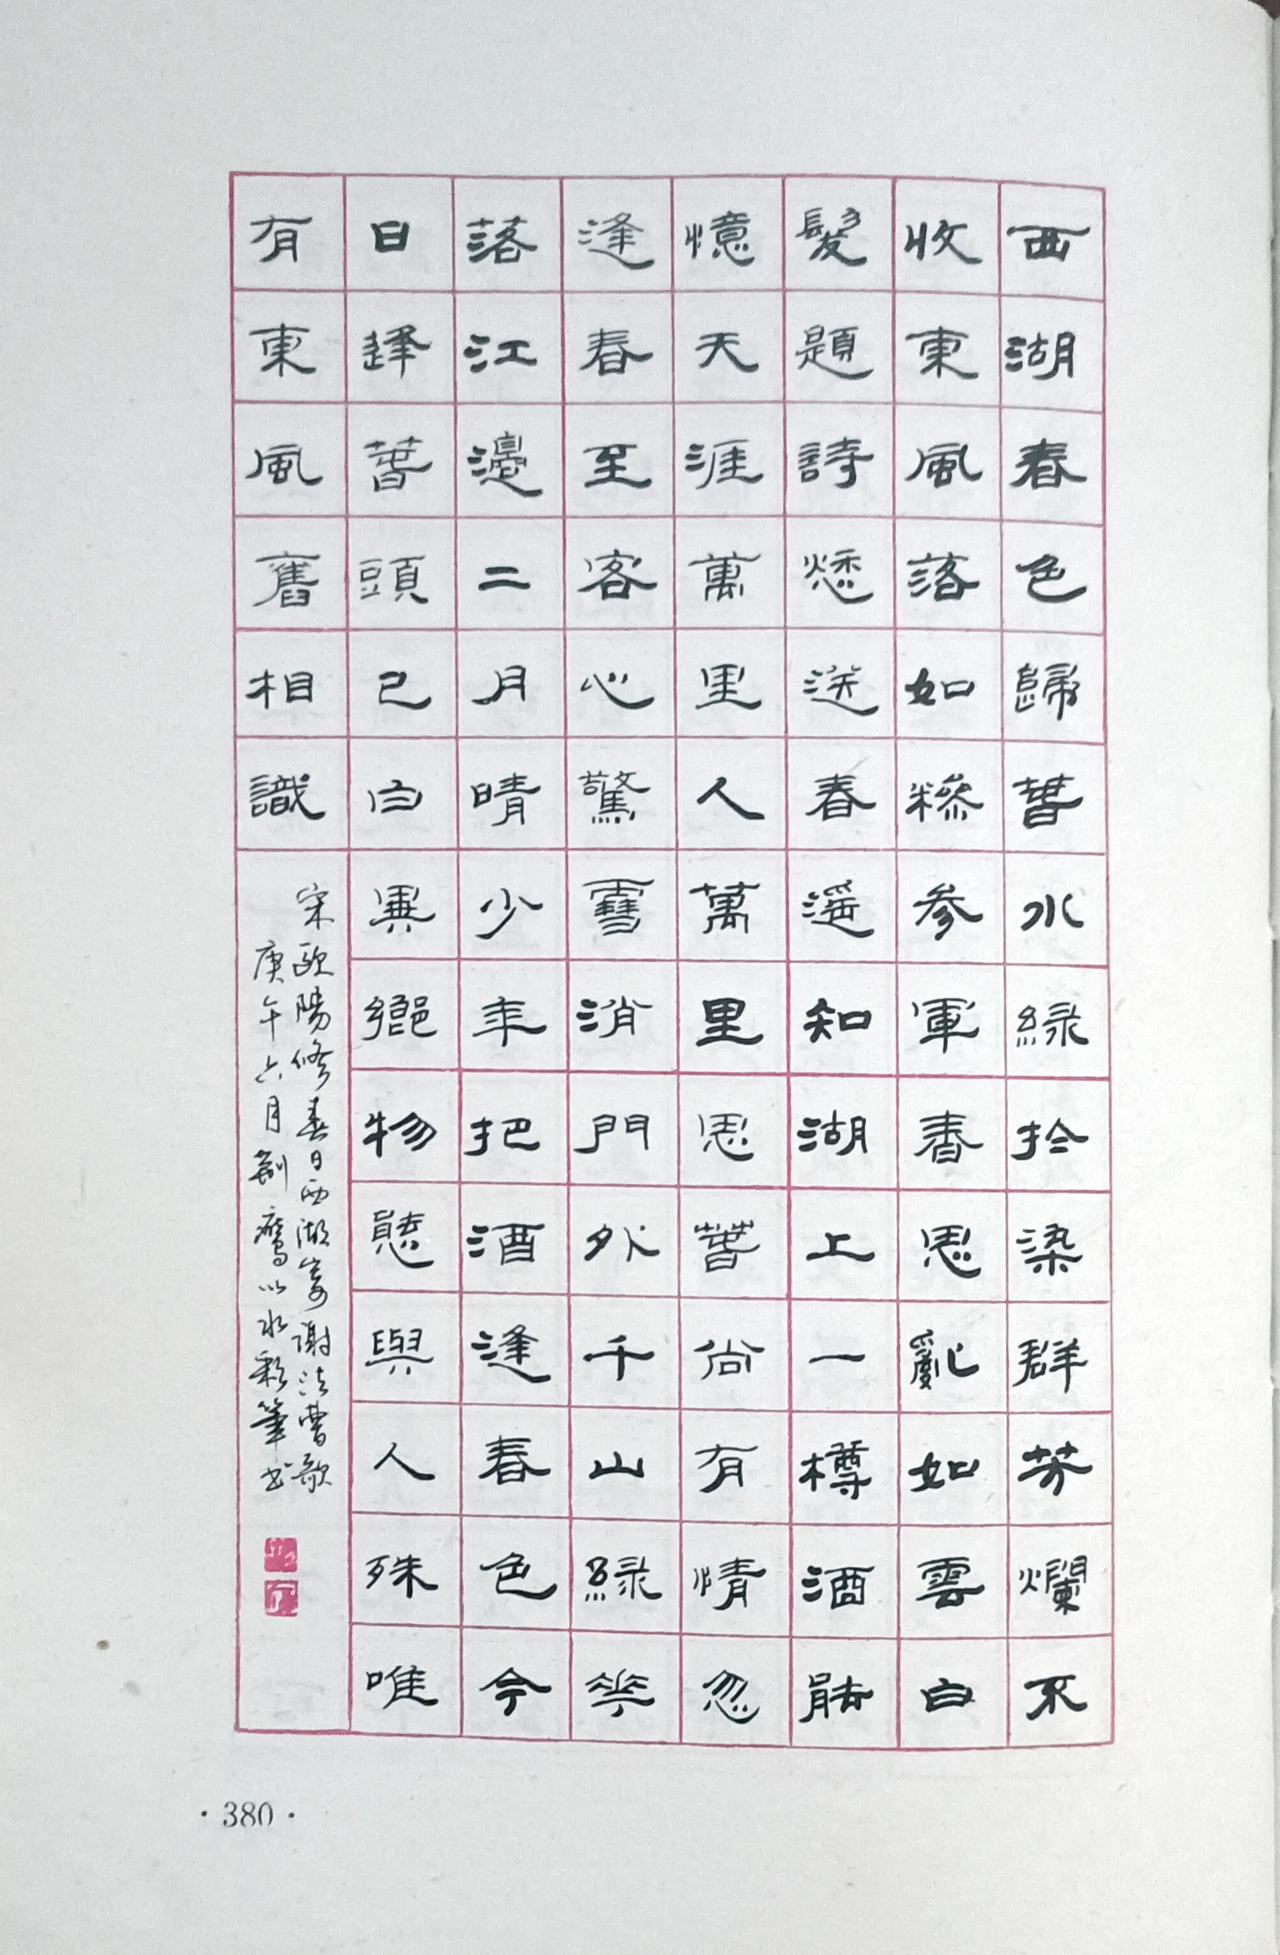 西湖春色歸春水綠於染群芳爛不
收東風落如糝參軍春思亂如雲白
髮題詩愁送春遙知湖上一樽酒能
憶天涯萬里人萬里思春尚有情忽
逢春至客心驚雪消門外千山綠花
落江邊二月晴少年把酒逢春色今
日逢春頭已白異鄉物態與人殊唯
有東風舊相識
宋歐陽修春日西湖寄謝法曹歌
庚午六月荊鷹以水彩筆書
·380·